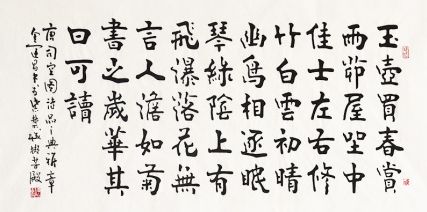 玉壺買春賞
雨茆屋坐中
佳士左右修
竹白雲初晴
幽鳥相逐眠
琴綠陰上有
飛瀑落花無
言人澹如菊
書之歲華其
曰可讀
唐司空圖詩品之典雅章